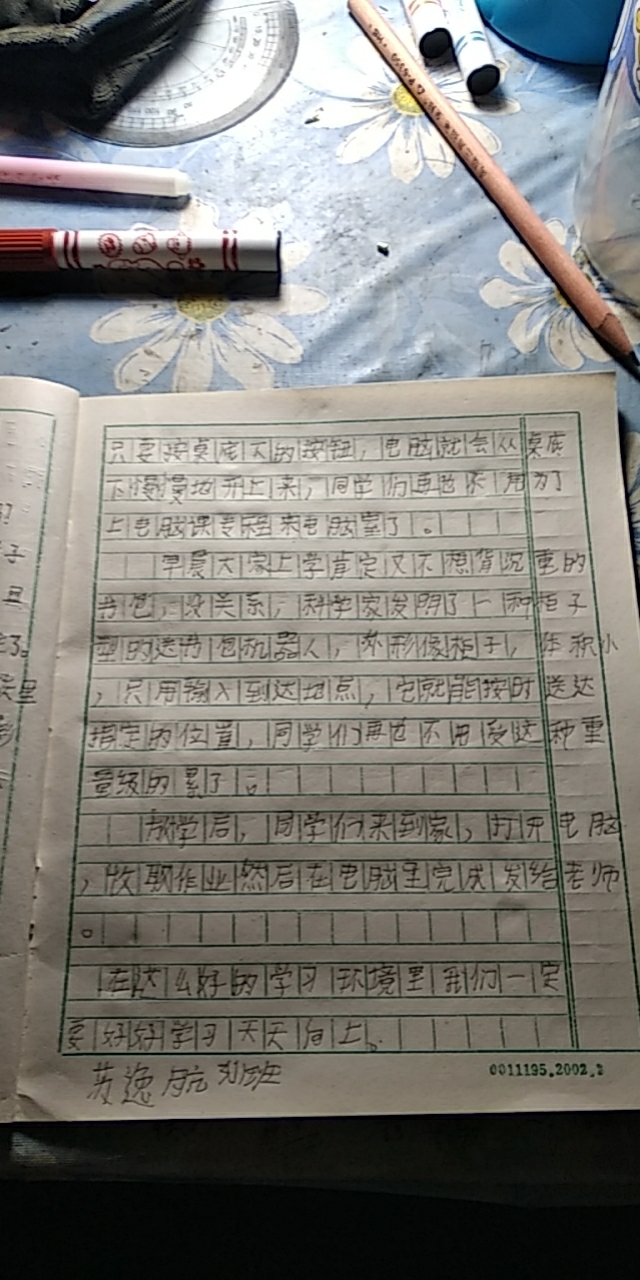 只要按桌底下的按钮，电脑就会从桌底
下慢慢地升上来，同学们再也不用为了
上电脑课专程来电脑室了。
早晨大家上学肯定又不想背沉重的
书包，没关系，科学家发明了一种柜子
型的送书包机器人，外形像柜子，体积小
，只用输入到达地点，它就能按时送达
指定的位置，同学们再也不用受这种重
量级的累了。
放学后，同学们来到家，打开电脑
，收取作业然后在电脑里完成发给老师
。
在这么好的学习环境里我们一定
要好好学习天天向上。
苏逸航 班
0011195.2002.2